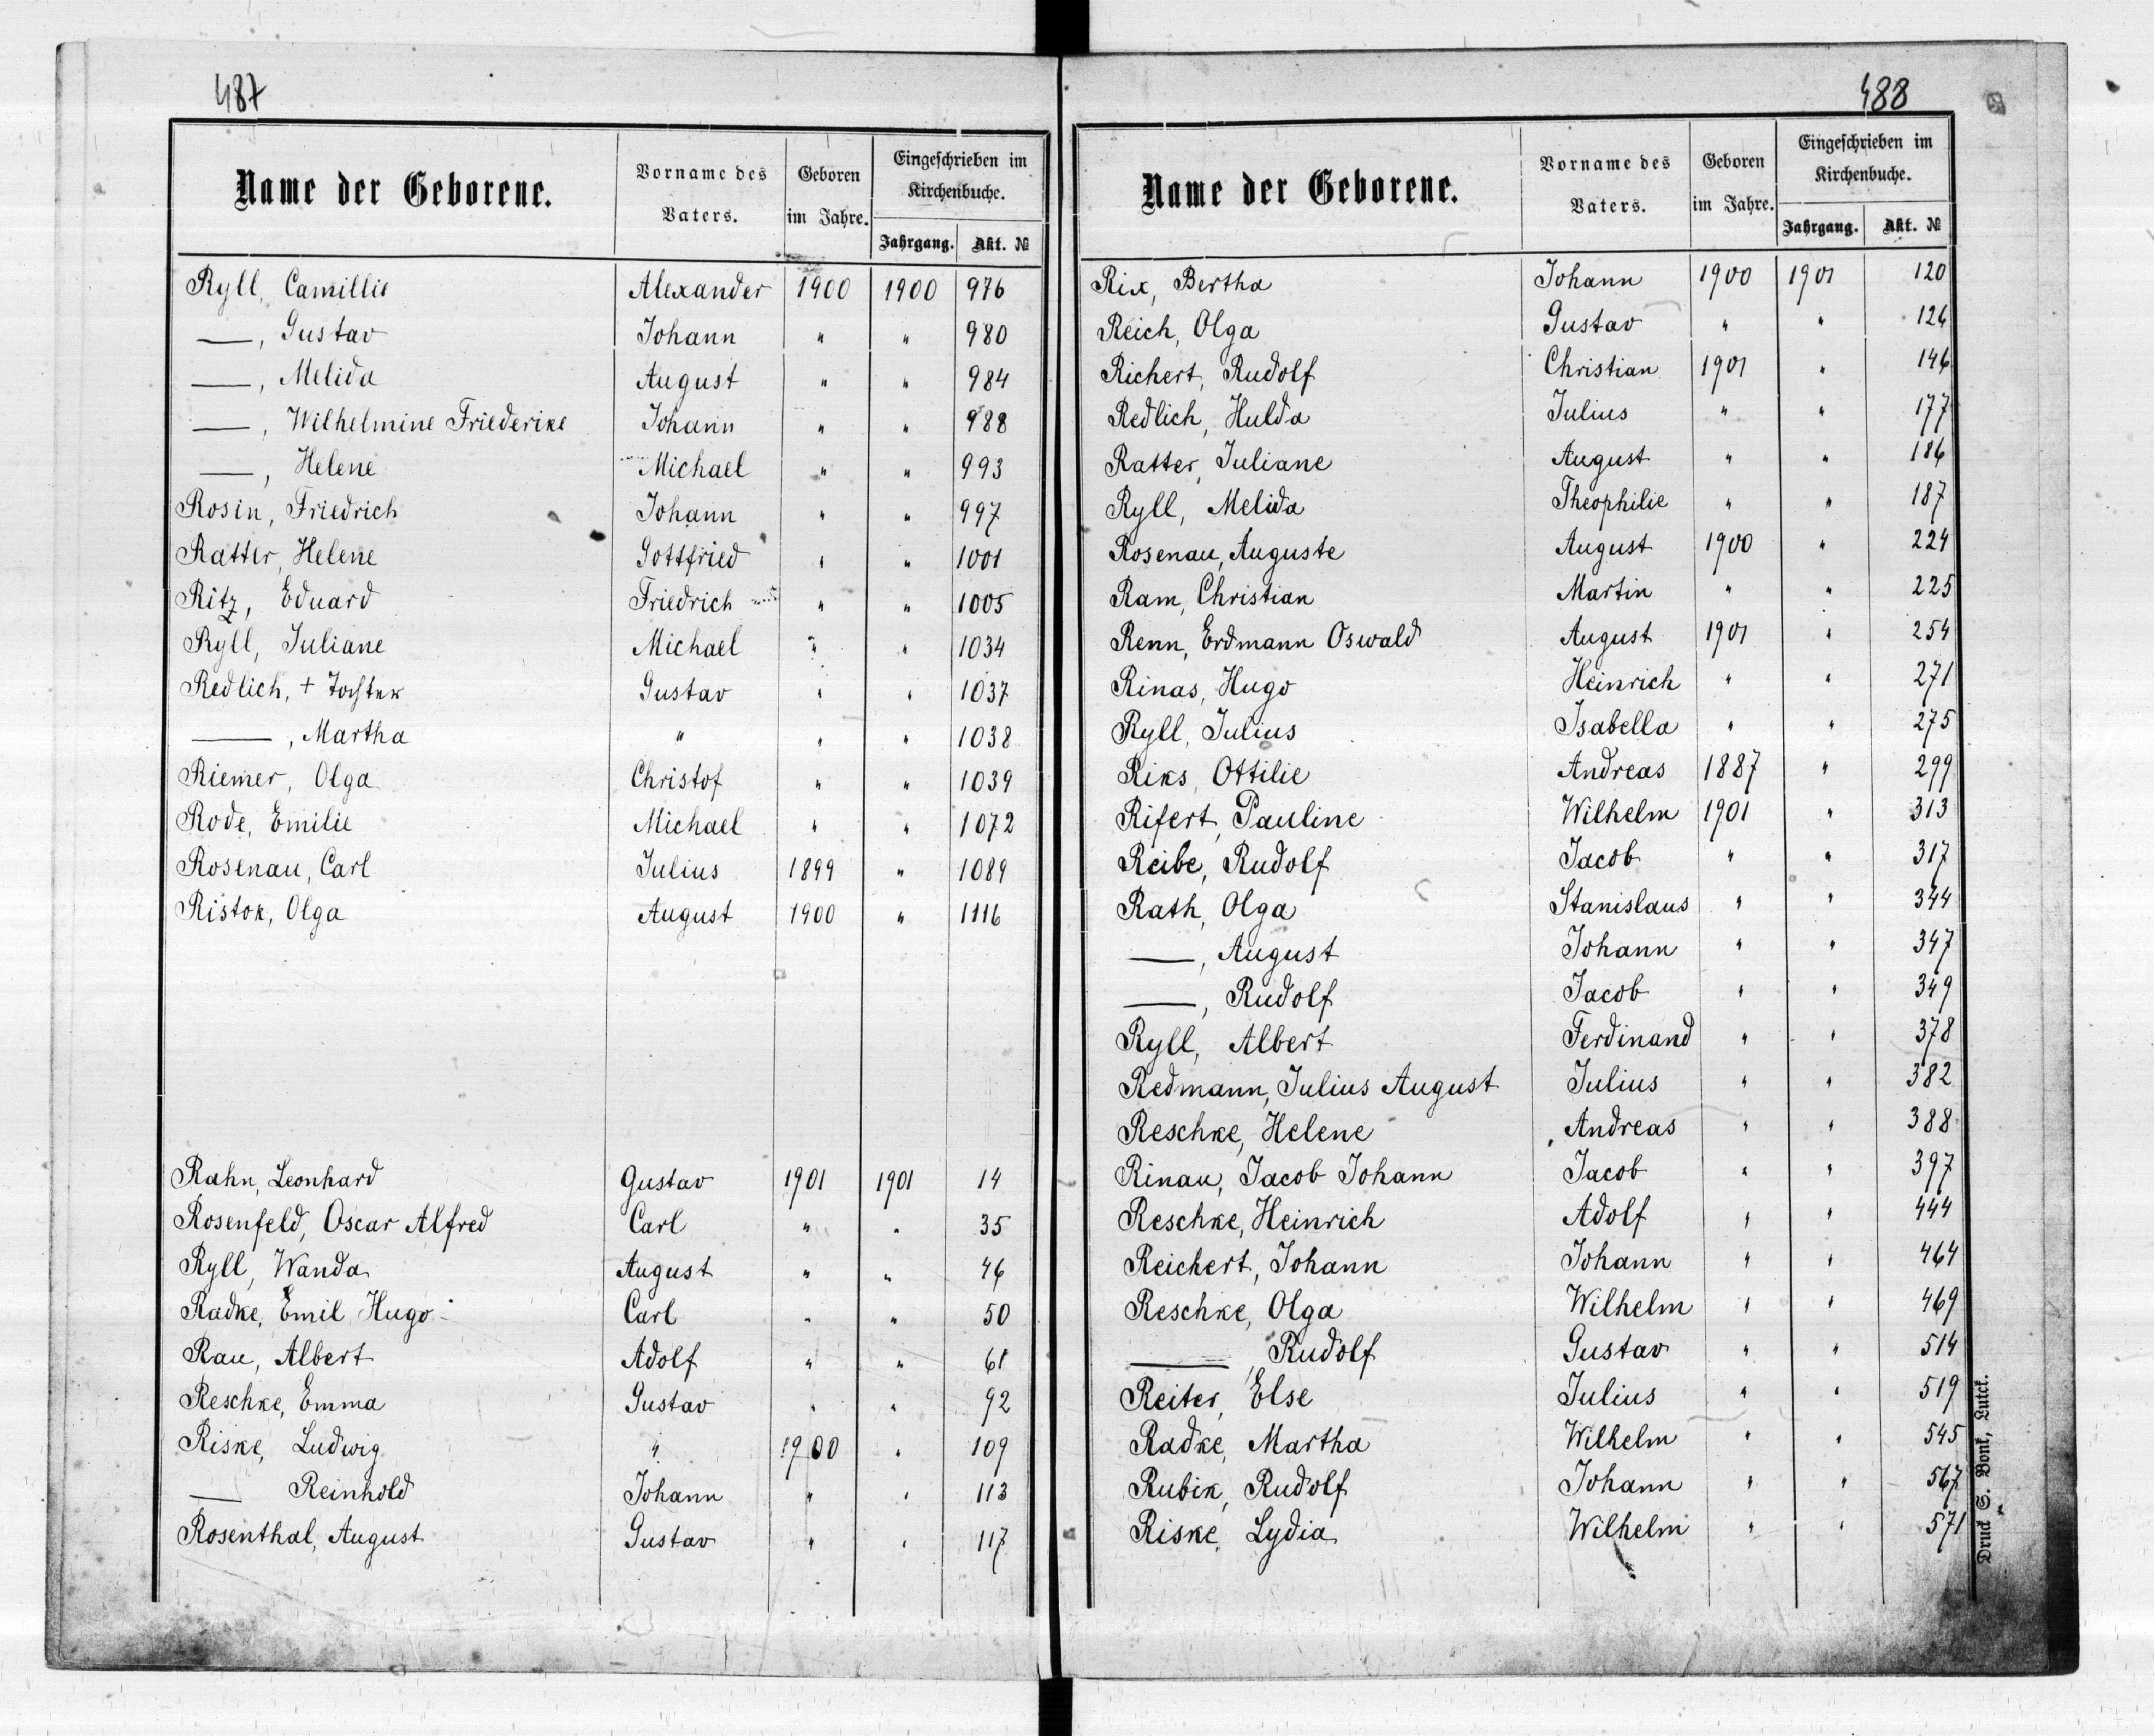 487
Name der Geborene. Vorname des Vaters. Geboren im Jahre. Eingeschrieben im Kirchenbuche. Jahrgang. Akt. №
Ryll, Camillis Alexander 1900 1900 976
—, Gustav Johann " " 980
—, Melida August " " 984
—, Wilhelmine Friederike Johann " " 988
—, Helene Michael " " 993
Rosin, Friedrich Johann " " 997
Ratter, Helene Gottfried " " 1001
Ritz, Eduard Friedrich " " 1005
Ryll, Juliane Michael " " 1034
Redlich, + Tochter Gustav " " 1037
—, Martha " " " 1038
Riemer, Olga Christof " " 1039
Rode, Emilie Michael " " 1072
Rosenau, Carl Julius 1899 " 1089
Ristok, Olga August 1900 " 1116
Rahn, Leonhard Gustav 1901 1901 14
Rosenfeld, Oscar Alfred Carl " " 35
Ryll, Wanda August " " 46
Radke, Emil Hugo Carl " " 50
Rau, Albert Adolf " " 61
Reschke, Emma Gustav " " 92
Riske, Ludwig " 1900 " 109
— Reinhold Johann " " 113
Rosenthal, August Gustav " " 117
488
Name der Geborene. Vorname des Vaters. Geboren im Jahre. Eingeschrieben im Kirchenbuche. Jahrgang. Akt. №
Rix, Bertha Johann 1900 1901 120
Reich, Olga Gustav " " 126
Richert, Rudolf Christian 1901 " 146
Redlich, Hulda Julius " " 177
Ratter, Juliane August " " 186
Ryll, Melida Theophilie " " 187
Rosenau, Auguste August 1900 " 224
Ram, Christian Martin " " 225
Renn, Erdmann Oswald August 1901 " 254
Rinas, Hugo Heinrich " " 271
Ryll, Julius Isabella " " 275
Riks, Ottilie Andreas 1887 " 299
Rifert, Pauline Wilhelm 1901 " 313
Reibe, Rudolf Jacob " " 317
Rath, Olga Stanislaus " " 344
—, August Johann " " 347
—, Rudolf Jacob " " 349
Ryll, Albert Ferdinand " " 378
Redmann, Julius August Julius " " 382
Reschke, Helene Andreas " " 388
Rinau, Jacob Johann Jacob " " 397
Reschke, Heinrich Adolf " " 444
Reichert, Johann Johann " " 464
Reschke, Olga Wilhelm " " 469
—, Rudolf Gustav " " 514
Reiter, Else Julius " " 519
Radke, Martha Wilhelm " " 545
Rubik, Rudolf Johann " " 567
Riske, Lydia Wilhelm " " 571
Druck S. Bonk, Lutck.